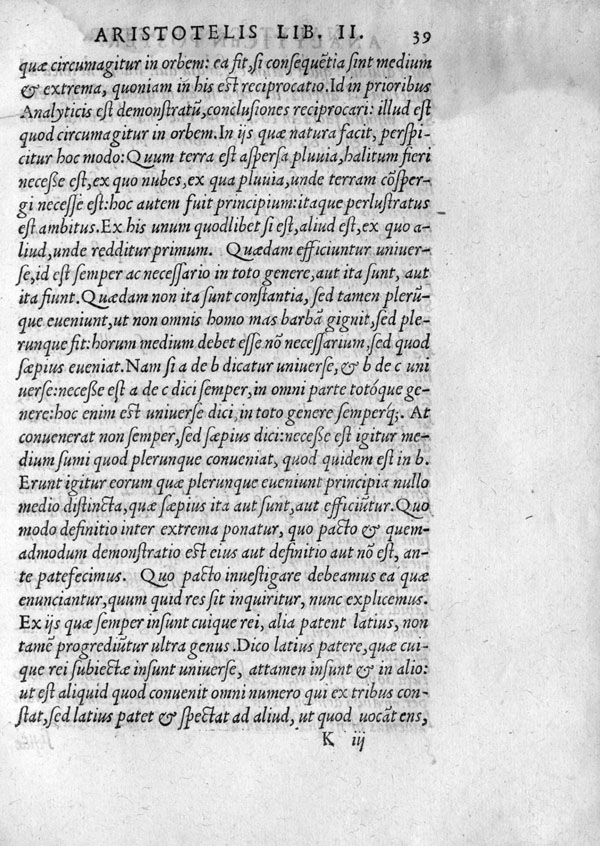 ARISTOTELIS LIB. II. 39
quæ circumagitur in orbem: ea fit, si consequẽtia sint medium
& extrema, quoniam in his est reciprocatio. Id in prioribus
Analyticis est demonstratũ, conclusiones reciprocari: illud est
quod circumagitur in orbem. In ijs quæ natura facit, perspi-
citur hoc modo: Quum terra est aspersa pluuia, halitum fieri
necesse est, ex quo nubes, ex qua pluuia, unde terram cõsper-
gi necesse est: hoc autem fuit principium: itaque perlustratus
est ambitus. Ex his unum quodlibet si est, aliud est, ex quo a-
liud, unde redditur primum. Quædam efficiuntur uniuer-
se, id est semper ac necessario in toto genere, aut ita sunt, aut
ita fiunt. Quædam non ita sunt constantia, sed tamen plerũ-
que eueniunt, ut non omnis homo mas barbã gignit, sed ple-
runque fit: horum medium debet esse nõ necessarium, sed quod
sæpius eueniat. Nam si a de b dicatur uniuerse, & b de c uni
uerse: necesse est a de c dici semper, in omni parte totóque ge-
nere: hoc enim est uniuerse dici, in toto genere semperq;. At
conuenerat non semper, sed sæpius dici: necesse est igitur me-
dium sumi quod plerunque conueniat, quod quidem est in b.
Erunt igitur eorum quæ plerunque eueniunt principia nullo
medio distincta, quæ sæpius ita aut sunt, aut efficiũtur. Quo
modo definitio inter extrema ponatur, quo pacto & quem-
admodum demonstratio est eius aut definitio aut nõ est, an-
te patefecimus. Quo pacto inuestigare debeamus ea quæ
enunciantur, quum quid res sit inquiritur, nunc explicemus.
Ex ijs quæ semper insunt cuique rei, alia patent latius, non
tamẽ progrediũtur ultra genus. Dico latius patere, quæ cui-
que rei subiectæ insunt uniuerse, attamen insunt & in alio:
ut est aliquid quod conuenit omni numero qui ex tribus con-
stat, sed latius patet & spectat ad aliud, ut quod uocãt ens,
K iij